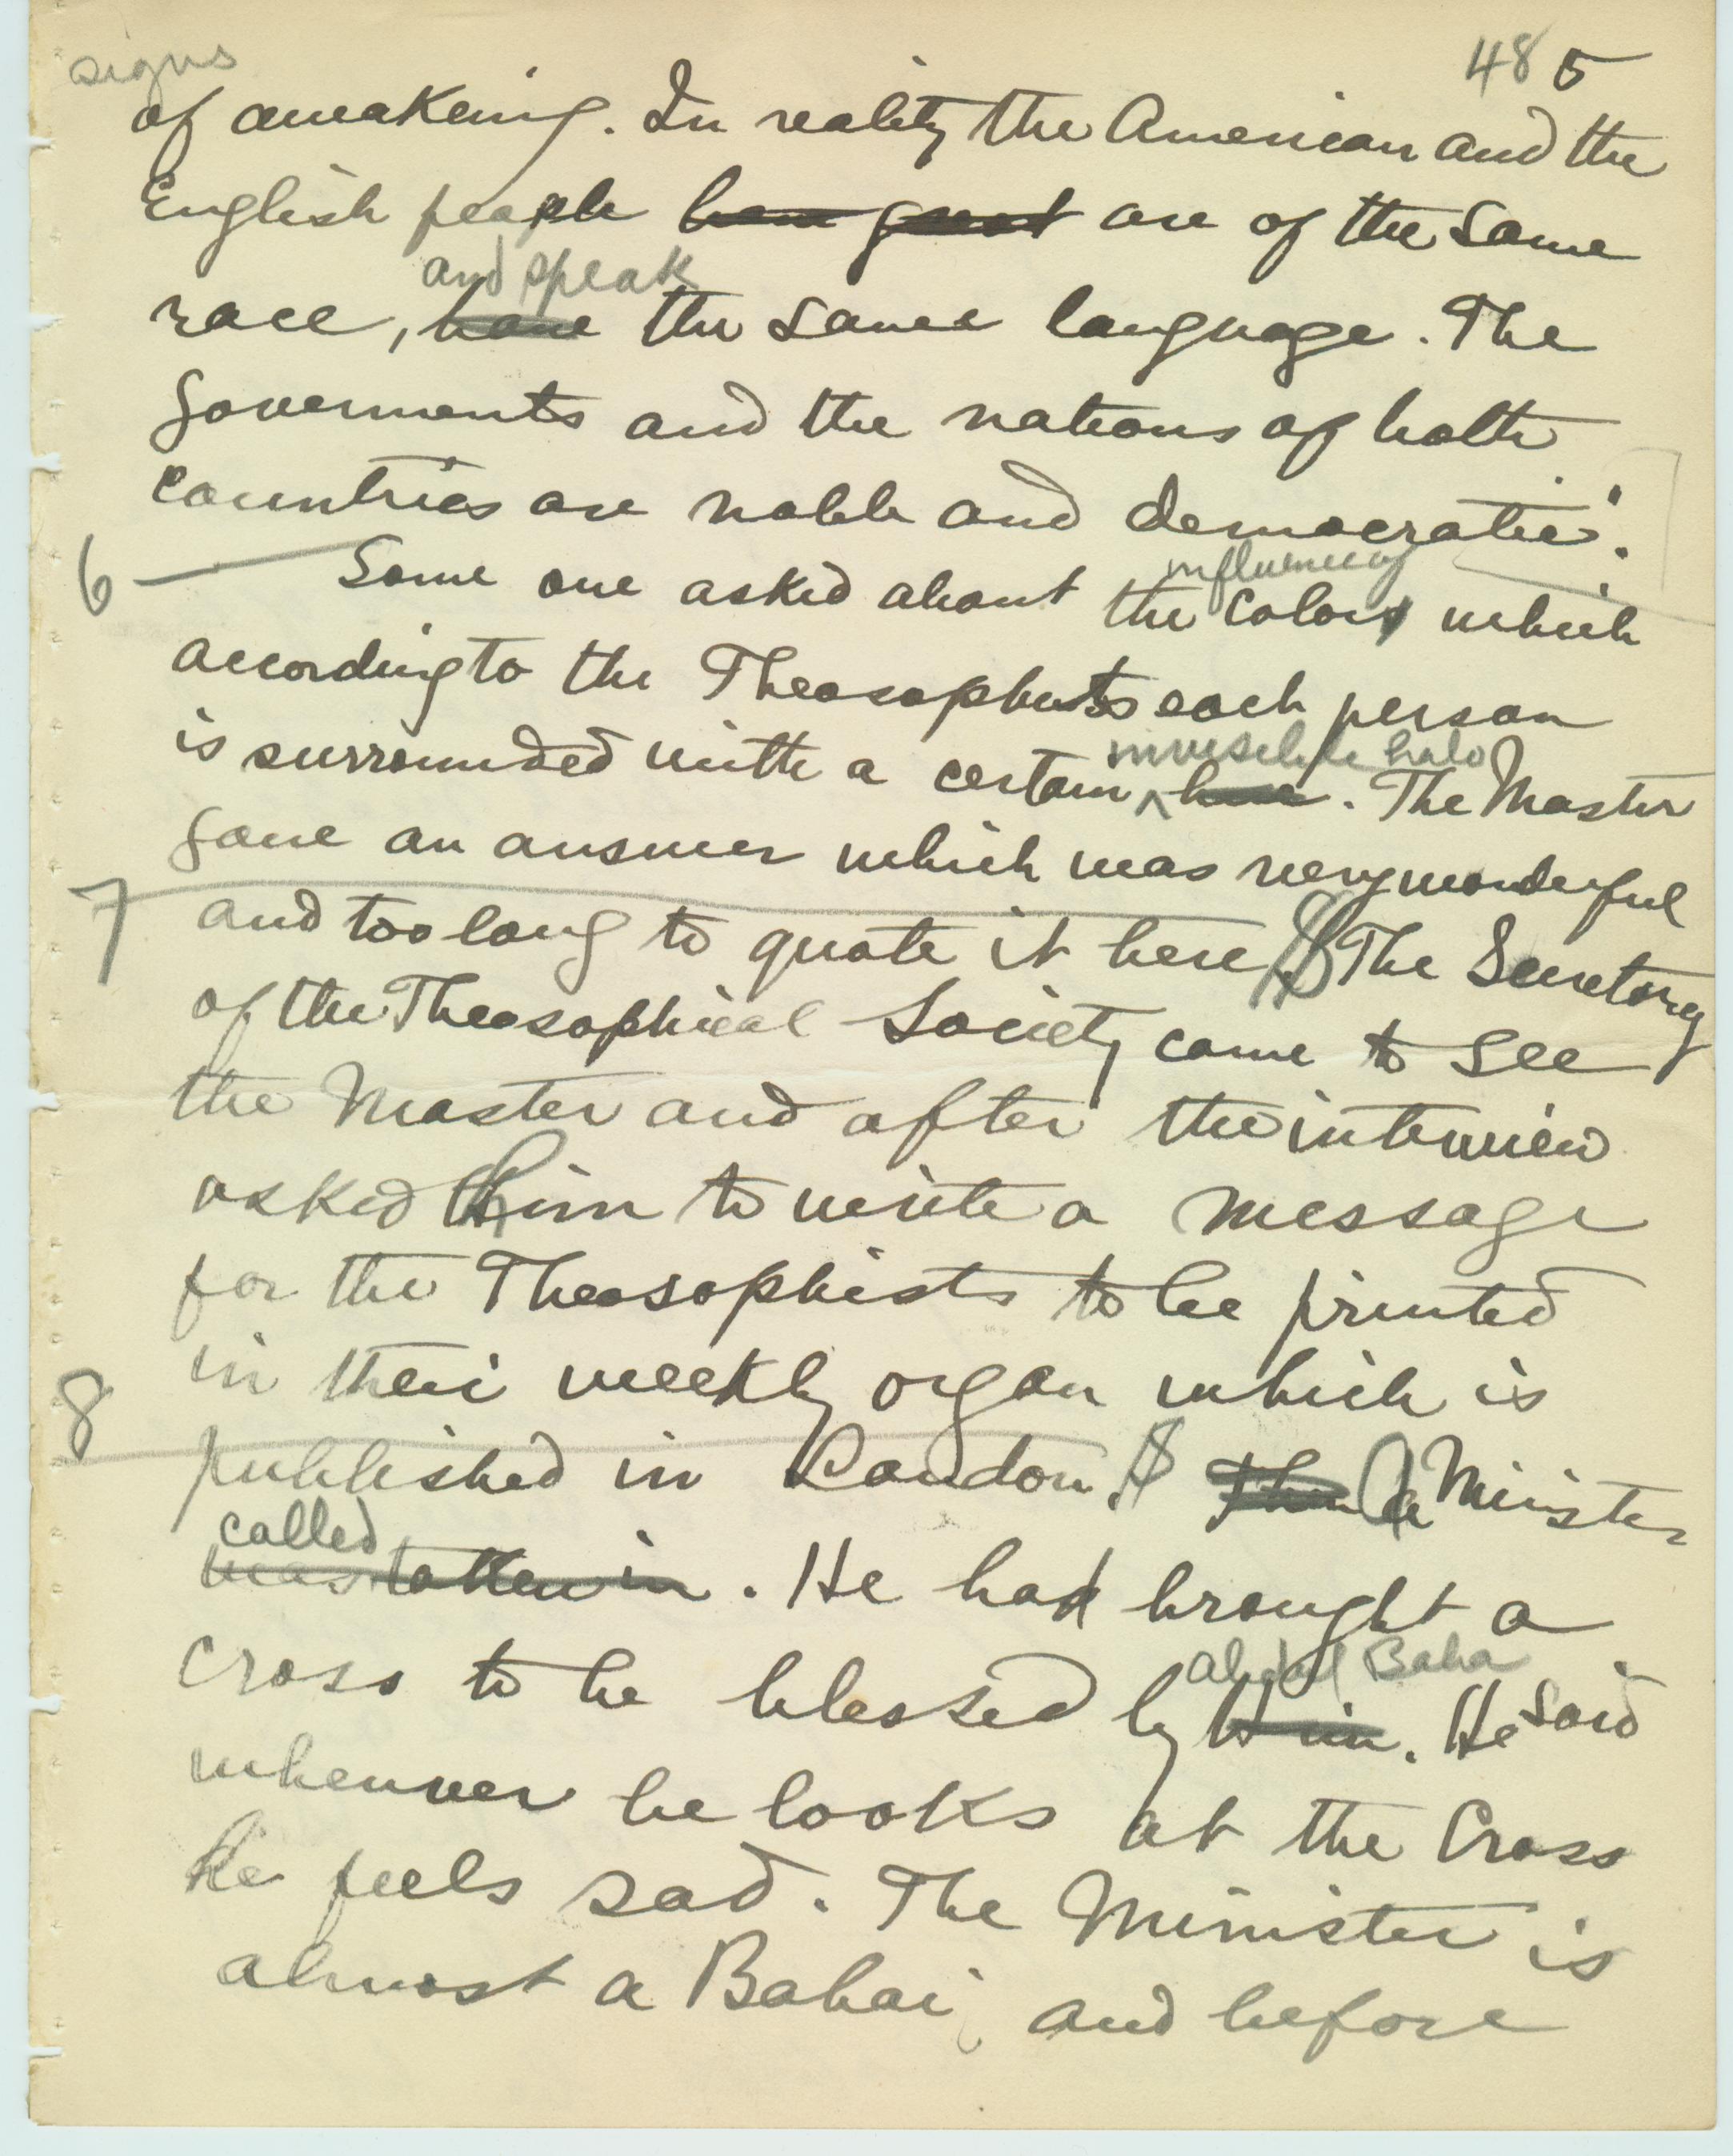 485
signs
of awakening. In reality the American and the
English people have great are of the same
and speak
race, have the same language. The
Governments and the nations of both
countries are noble and democratic."
influence of
6 Some one asked about the colors which
according to the Theosophists each person
invisible halo
is surrounded with a certain ^ hue. The Master
gave an answer which was very wonderful
7 and too long to quote it here. The Secretary
of the Theosophical Society came to see
the Master and after the interview
asked Him to write a message
for the Theosophists to be printed
in their weekly organ which is
8 published in London. Then A Minister
called
was taken in. He had brought a
Abdul Baha
cross to be blessed by Him. He said
whenever he looks at the Cross
he feels sad. The Minister is
almost a Bahai, and before